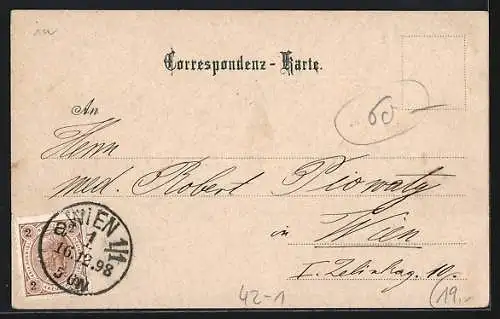 Correspondenz-Karte.
60
An
Herrn
med. Robert Piowaty
in Wien
I. Zelinkag. 10.
2
2
WIEN 1/1
16.12.98
42-1
19.-